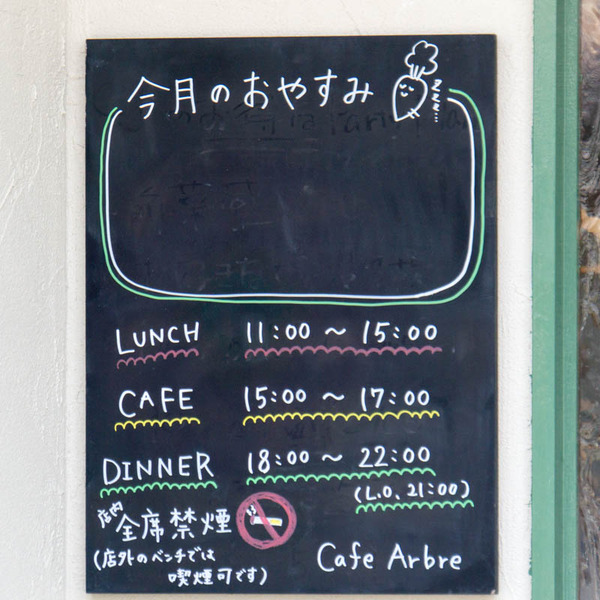 今月のおやすみ
zzz...
LUNCH 11:00 ～ 15:00
CAFE 15:00 ～ 17:00
DINNER 18:00 ～ 22:00
(L.O. 21:00)
店内 全席禁煙
(店外のベンチでは
喫煙可です)
Cafe Arbre